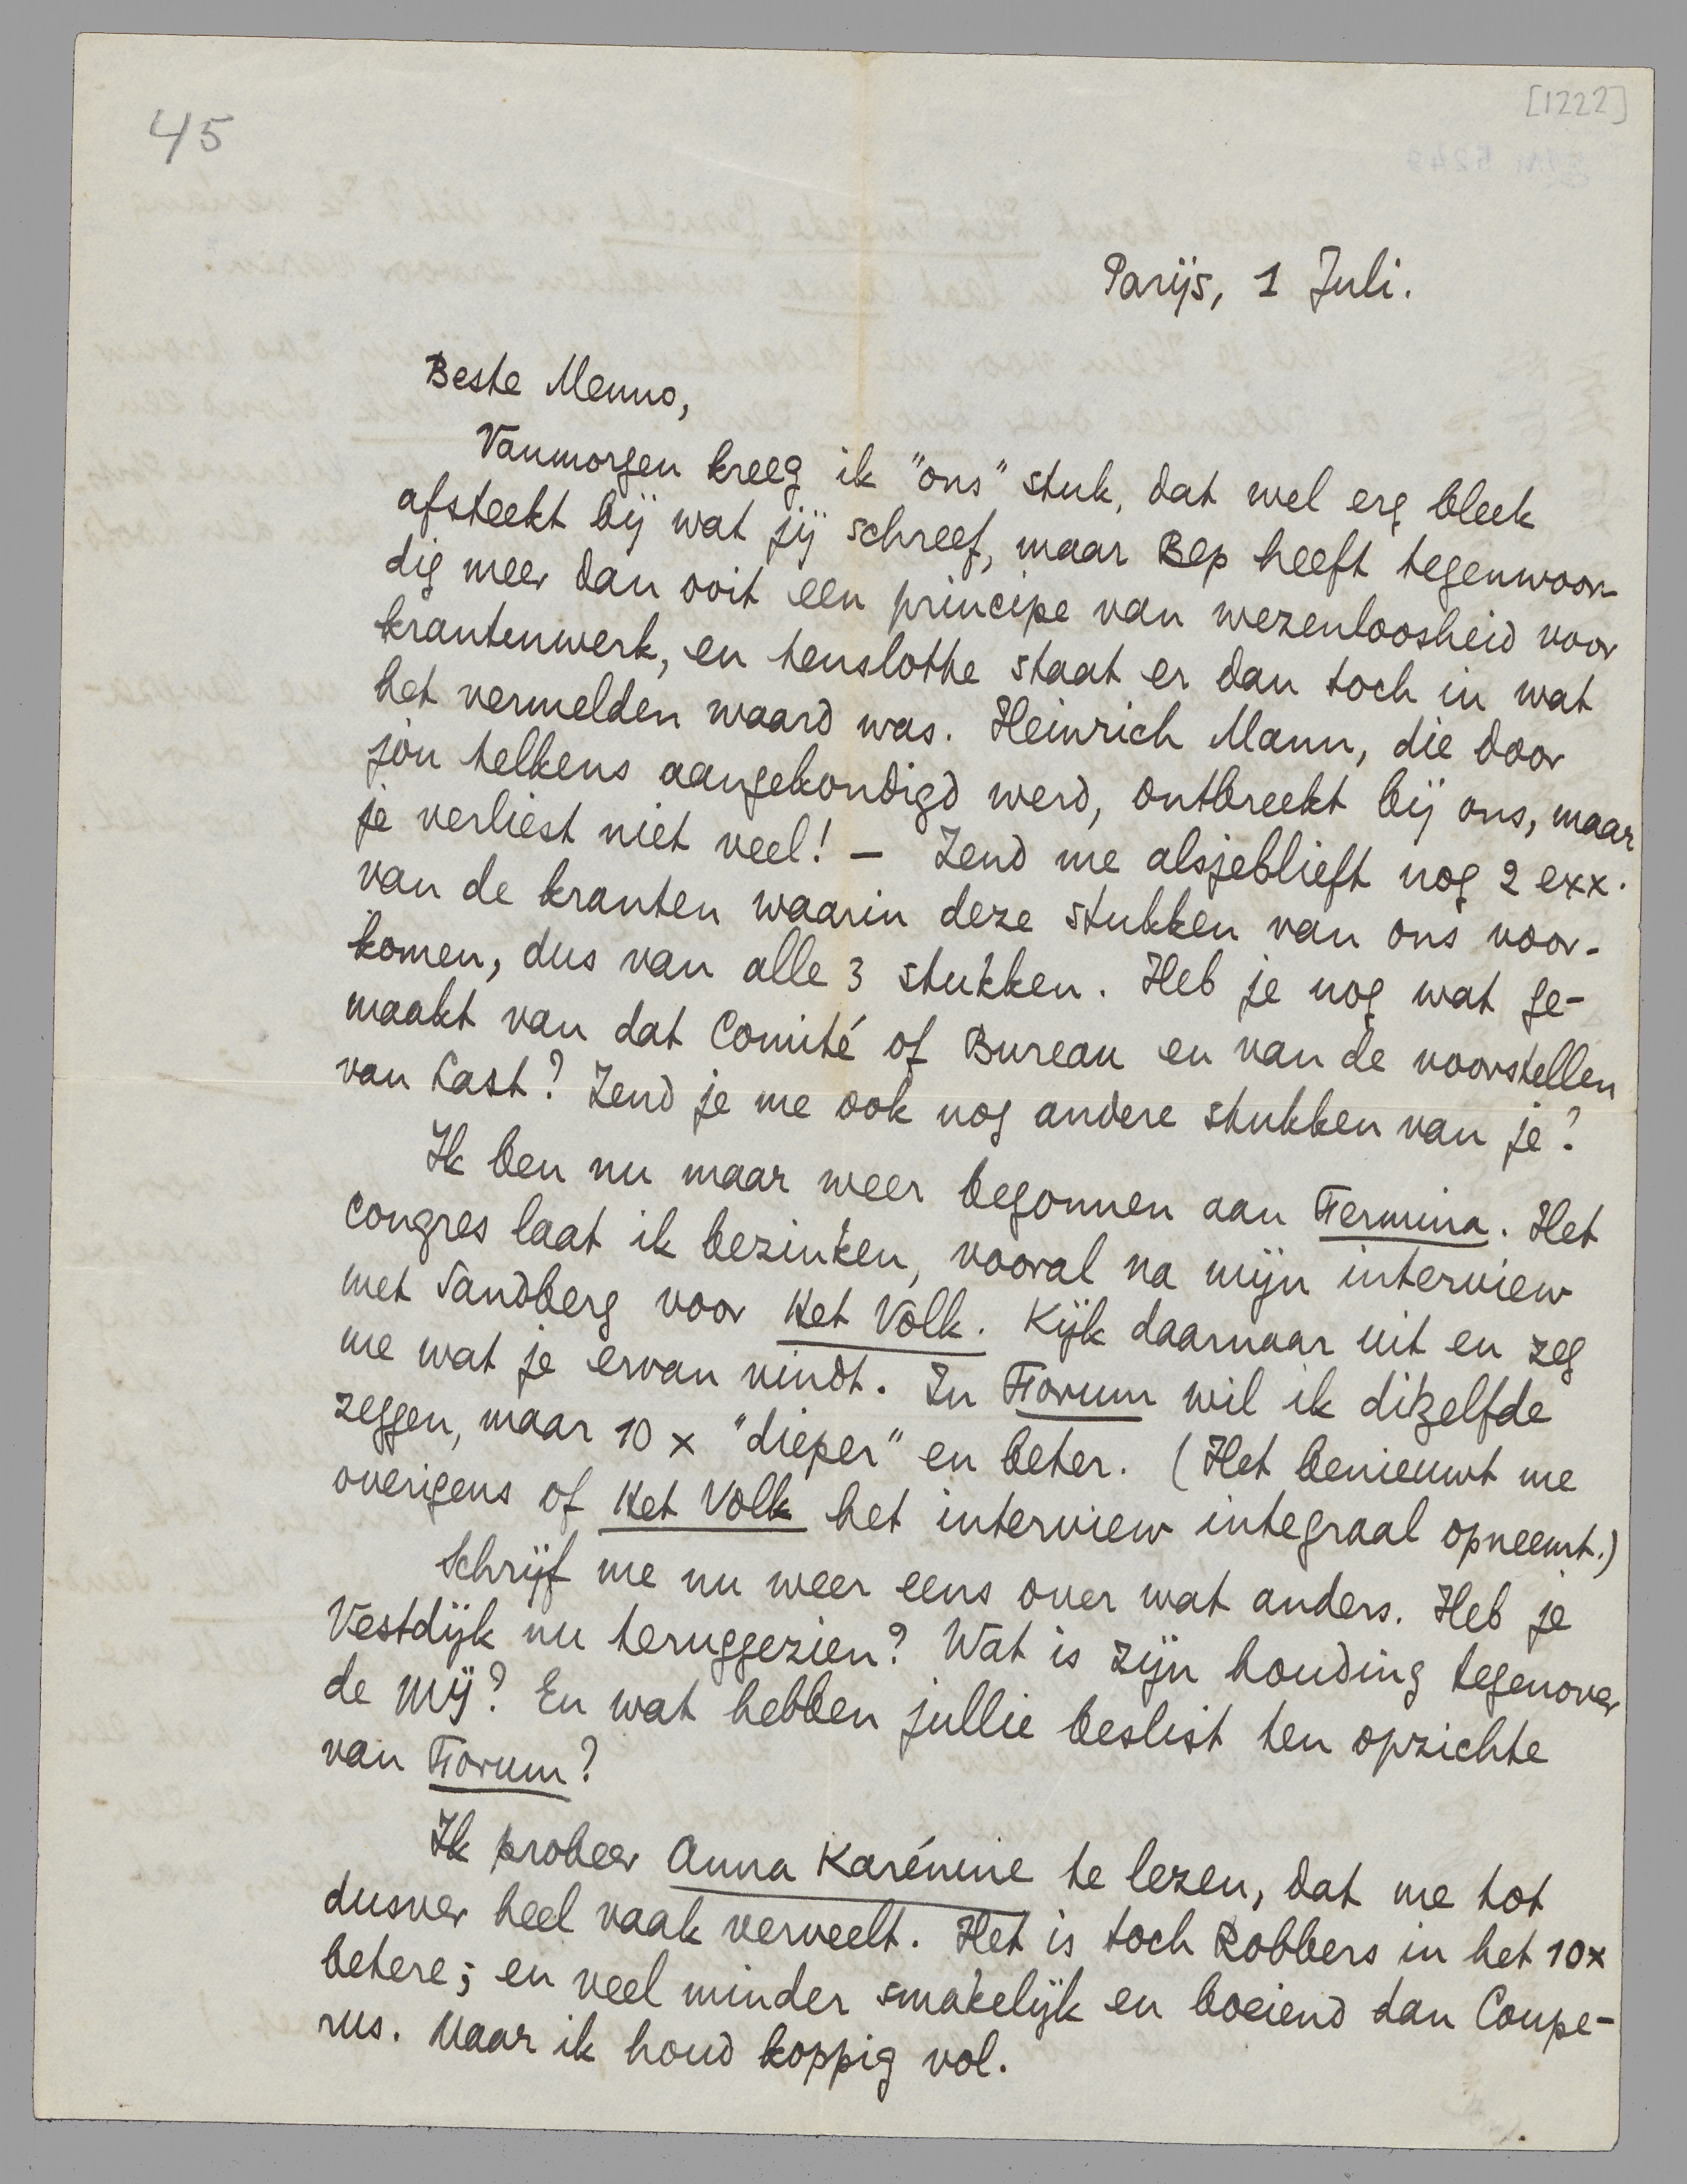 45
[1222]
Parijs, 1 Juli.
Beste Menno,
Vanmorgen kreeg ik "ons" stuk, dat wel erg bleek
afsteekt bij wat jij schreef, maar Bep heeft tegenwoor-
dig meer dan ooit een principe van wezenloosheid voor
krantenwerk, en tenslotte staat er dan toch in wat
het vermelden waard was. Heinrich Mann, die door
jòu telkens aangekondigd werd, ontbreekt bij ons, maar
je verliest niet veel! — Zend me alsjeblieft nog 2 exx.
van de kranten waarin deze stukken van ons voor-
komen, dus van alle 3 stukken. Heb je nog wat ge-
maakt van dat Comité of Bureau en van de voorstellen
van Last? Zend je me ook nog andere stukken van je?
Ik ben nu maar weer begonnen aan Fermina. Het
congres laat ik bezinken, vooral na mijn interview
met Sandberg voor Het Volk. Kijk daarnaar uit en zeg
me wat je ervan vindt. In Forum wil ik ditzelfde
zeggen, maar 10 x "dieper" en beter. (Het benieuwt me
overigens of Het Volk het interview integraal opneemt.)
Schrijf me nu weer eens over wat anders. Heb je
Vestdijk nu teruggezien? Wat is zijn houding tegenover
de Mij? En wat hebben jullie beslist ten opzichte
van Forum?
Ik probeer Anna Karénine te lezen, dat me tot
dusver heel vaak verveelt. Het is toch Robbers in het 10x
betere; en veel minder smakelijk en boeiend dan Coupe-
rus. Maar ik houd koppig vol.